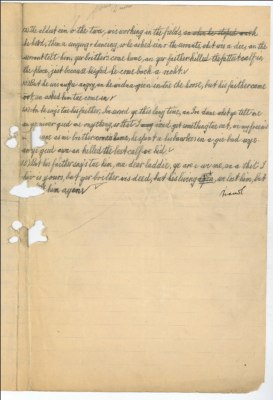 the eldest ain o' the twa, wis working in the fields, an when he stopet work
he hard, than a singing & dancing, so he asked ain o' the servants, what was a dee, an the
servant tell't him, yer brither's come hame, an yer faither killed the fattest calf in
the place, just because he's come back a' richt.
But he wis angry, an he widna gyan inside the hoose, but his faither came
oot, an asked him tae come in.
he says tae his faither, I'm served ye this long time, an I've dune what ye tell't me
an ye never gied me onything, so that I could get something tae eat, wi my friends
as me brither, he spent a his in a bad ways
an ye gied an killed the best calf for him.
But his faither says tae him, me dear laddie, ye are wi me, an a' that I
hiv is yours, but yer brither was deid, but his living, we lost him, but
him again